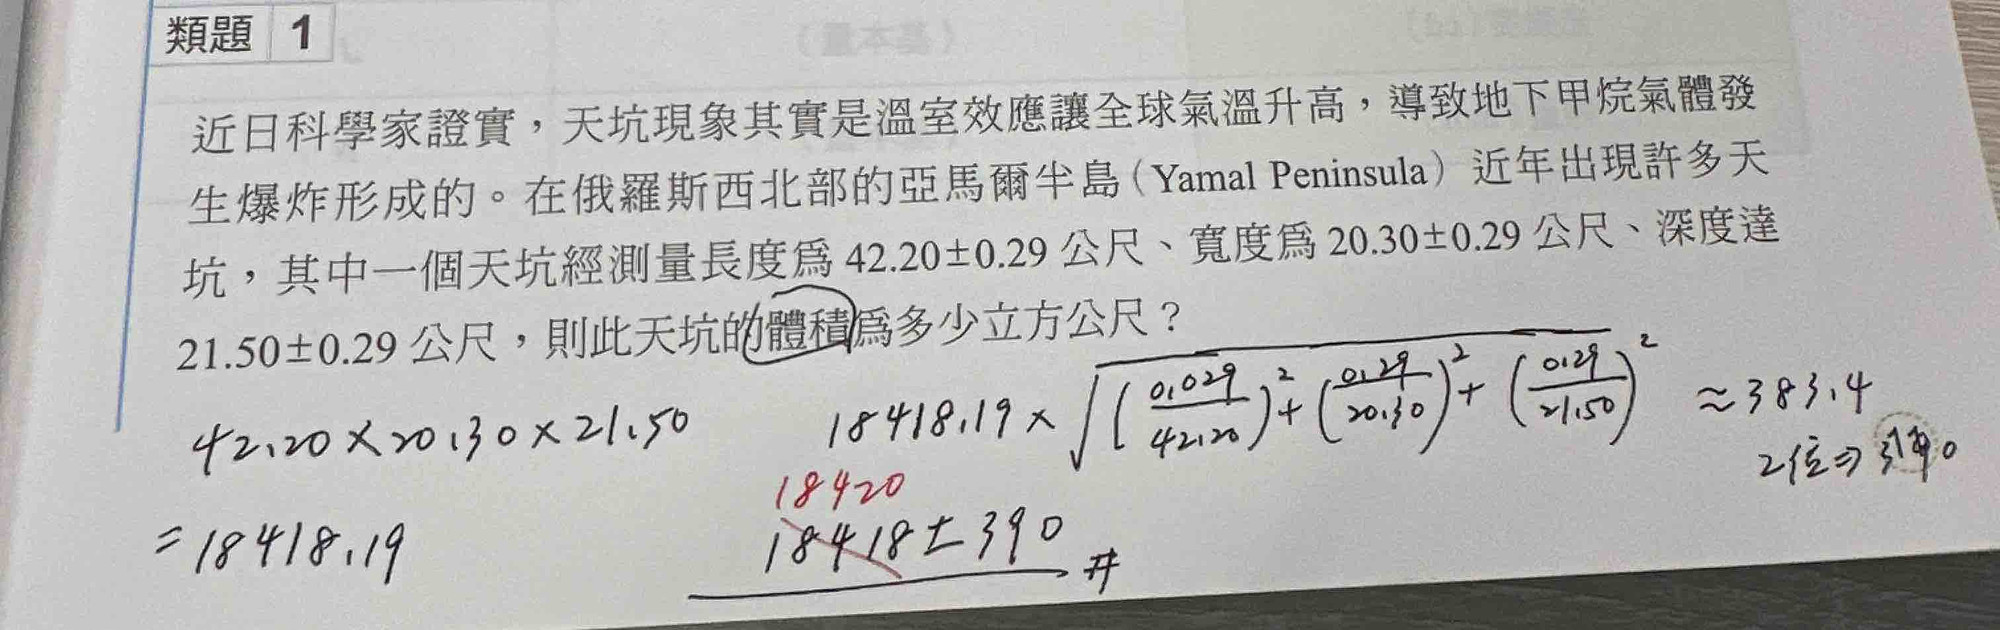 類題 1
近日科學家證實，天坑現象其實是溫室效應讓全球氣溫升高，導致地下甲烷氣體發
生爆炸形成的。在俄羅斯西北部的亞馬爾半島（Yamal Peninsula）近年出現許多天
坑，其中一個天坑經測量長度為 42.20±0.29 公尺、寬度為 20.30±0.29 公尺、深度達
21.50±0.29 公尺，則此天坑的體積為多少立方公尺？
42.20×20.30×21.50
=18418.19
18418.19×√((0.029/42.20)²+(0.29/20.30)²+(0.29/21.50)²) ≈383.4
2位⇒390
18420
18418±390 #